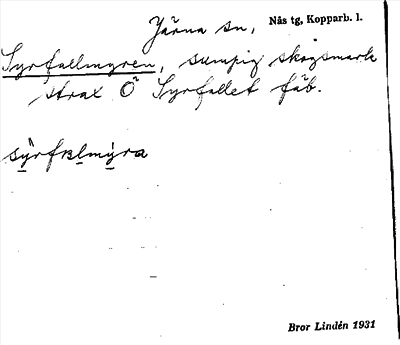 Järna sn, Nås tg, Kopparb. l.
Syrfallmyren, sumpig skogsmark
strax Ö Syrfallet fäb.
Bror Lindén 1931